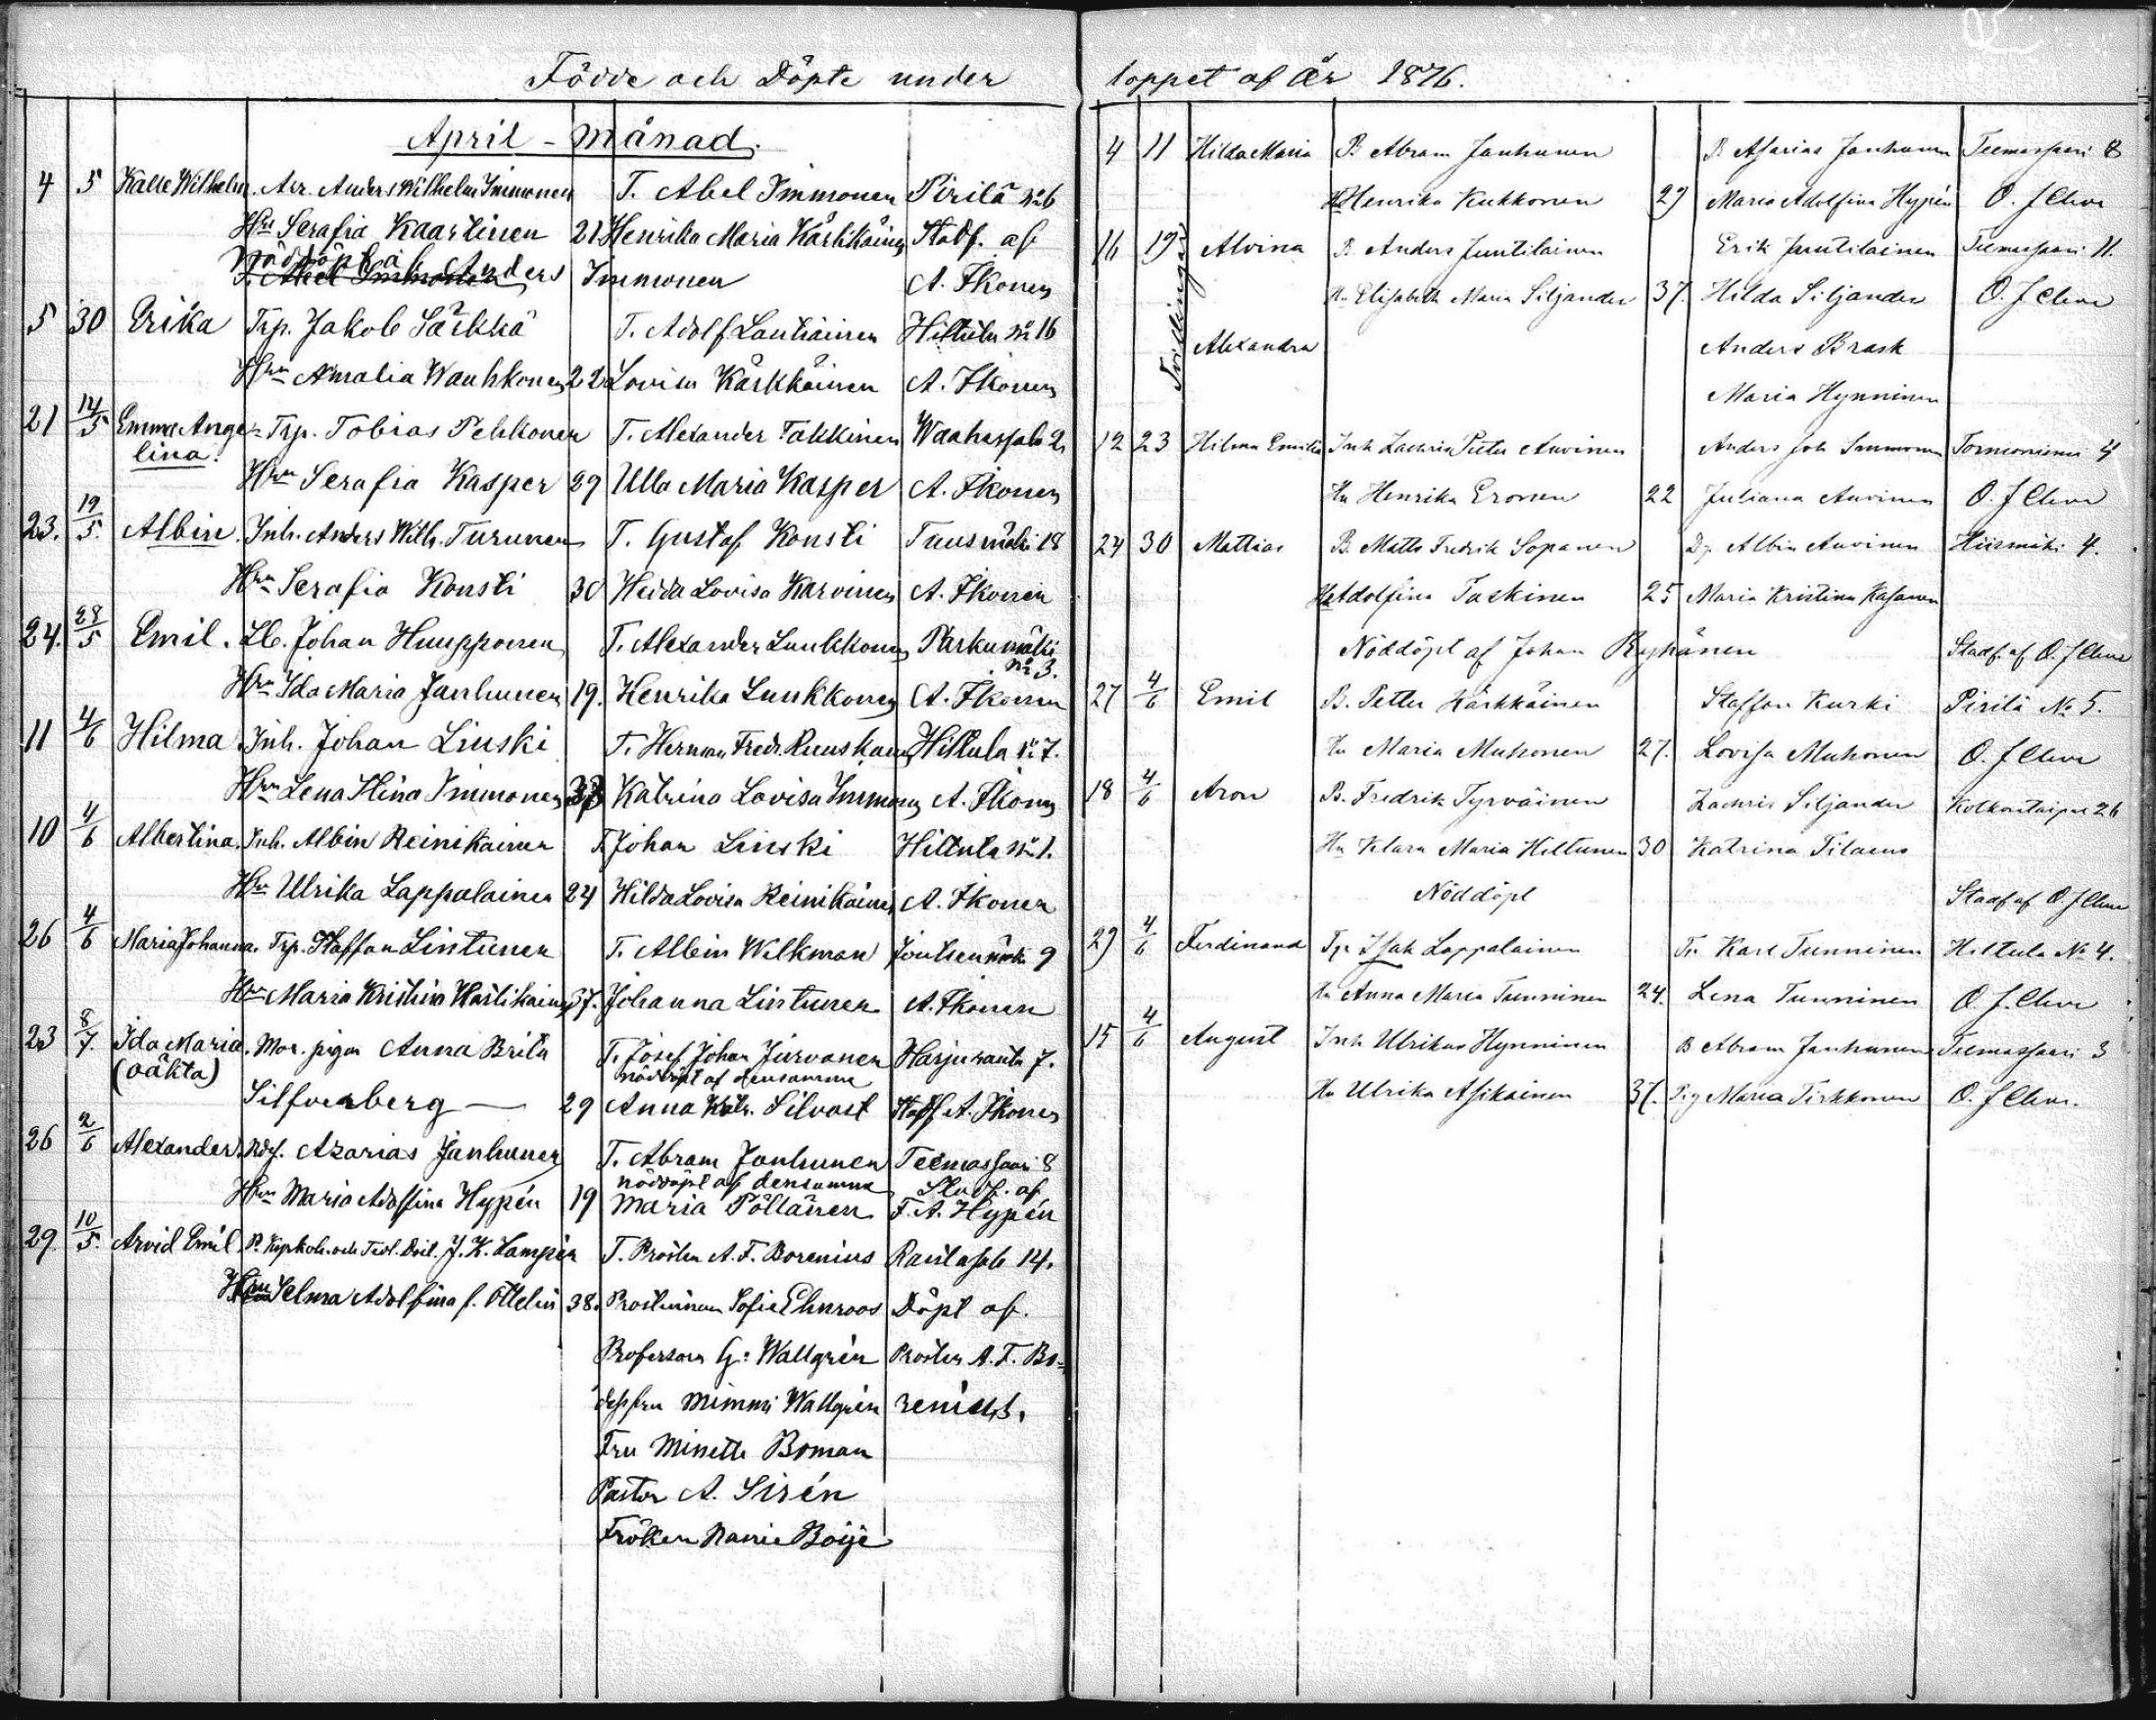 Födde och Döpte under
April - månad.
4 5 Kalle Wilhelm. Arr. Anders Wilhelm Immonen T. Abel Immonen Pirilä № 6
Hru Serafia Kaartinen 21 Henrika Maria Kärkkäinen Stadf. af
Nöddöpt af Anders Immonen A. Ikonen
5 30 Erika Trp. Jakob Särkkä T. Adolf Hiltula № 16
Hru Amalia Wauhkonen 22 Lovisa Kärkkäinen A. Ikonen
21 14/5 Emma Ange- Trp. Tobias Pekkonen T. Alexander Takkinen 2
lina.
Hru Serafia Kasper 29 Ulla Maria Kasper A. Ikonen
23. 19/5. Albin. Inh. Anders Wilh. Turunen T. Gustaf Konsti Tuusmäki 18
Hru Serafia Konsti 30 Hedda Lovisa Karvinen A. Ikonen
24. 28/5 Emil. Lb. Johan Huupponen T. Alexander Luukkonen Parkumäki
№ 3.
Hru Ida Maria Janhunen 19. Henrika Luukkonen A. Ikonen
11 4/6 Hilma Inh. Johan Liuski T. Herman Fredr. Ruuskanen Hiltula № 7.
Hru Lena Stina Immonen 33 Katrina Lovisa Immonen A. Ikonen
10 4/6 Albertina. Inh. Albin Reinikainen T. Johan Liuski Hiltula № 1.
Hru Ulrika Lappalainen 24 Hilda Lovisa Reinikainen A. Ikonen
26 4/6 Maria Johanna. Trp. Staffan Lintunen T. Albin Wilkman Joutsenmäki 9
Hru Maria Kristina 37. Johanna Lintunen A. Ikonen
23 8/7. Ida Maria. Mor. pigan Anna Brita T. Josef Johan Jurvanen Harjuranta 7.
(oäkta) nöddöpt af densamma
Silfverberg — 29 Anna Katr. Silvast Stadf A. Ikonen
26 2/6 Alexander. Ndg. Azarias Janhunen T. Abram Janhunen Teemassaari 8
nöddöpt af densamma Stadf. af
Hru Maria Adolfina Hypén 19 Maria Pöllänen F. A. Hypén
29. 10/5. Arvid Emil P. Kapkoh. och J. K. Lampén T. Prosten A. F. Borenius Rantasalo 14.
Hru Selma Adolfina f. Ottelin 38. Prostinnan Sofie Ehnroos Döpt af.
Professorn G: Wallgrén Prosten A. F. Bo-
dess fru Mimmi Wallgrén renius.
Fru Minette Boman
Pastor A. Sirén
Fröken Nanie Boije
loppet af År 1876.
4 11 Hilda Maria B. Abram Janhunen B. Asarias Janhunen Teemassaari 8
Hu Henrika Kukkonen 29 Maria Adolfina Hypén O. J Cleve
16 19 Tvillingar Alvina B. Anders Juutilainen Erik Juutilainen Teemassaari 11.
Hu Elisabeth Maria Siljander 37. Hilda Siljander O. J Cleve
Alexandra Anders Brask
Maria Hynninen
12 23 Hilma Emilia Inh Zachris Petter Auvinen Anders Joh Immonen Tornioniemi 4
Hu Henrika Eronen 22 Juliana Auvinen O. J Cleve
24 30 Mattias B. Matts Fredrik Sopanen Dg. Albin Auvinen Hiismäki 4.
Hu Adolfina Taskinen 25 Maria Kristina Kasanen
Nöddöpt af Johan Ryhänen Stadf. af O. J Cleve
27 4/6 Emil B. Petter Härkkäinen Staffan Kurki Pirilä № 5.
Hu Maria Muhonen 27. Lovisa Muhonen O. J Cleve
18 4/6 Aron B. Fredrik Tyrväinen Zachris Siljander Kolkontaipale 26
Hu Klara Maria Hiltunen 30 Katrina Tilaeus
Nöddöpt Stadf af O J Cleve
29 4/6 Ferdinand Tp Isak Lappalainen Tr. Karl Tunninen Hiltula № 4.
Hu Anna Maria Tunninen 24. Lena Tunninen O. J. Cleve
15 4/6 August Inh Ulrikus Hynninen B Abram Janhunen Teemassaari 3
Hu Ulrika Asikainen 37. Pig Maria Tirkkonen O. J Cleve.